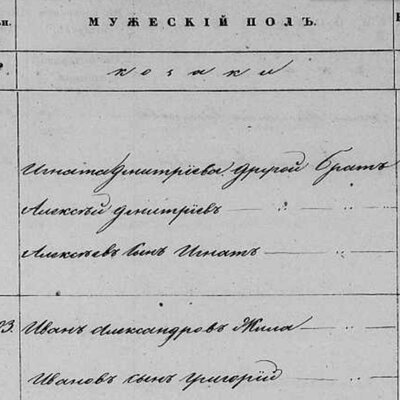 МУЖЕСКІЙ ПОЛЪ.
козаки
Игната Дмитріева другой братъ
Алексѣй Дмитріевъ — " — " —
Алексѣевъ сынъ Игнатъ — " — " —
23. Иванъ Александровъ Жила — " —
Ивановъ сынъ Григорій — " —